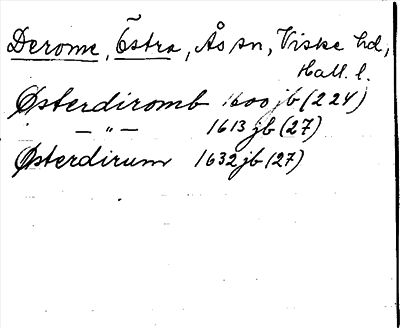 Derome, Östra, Ås sn, Viske hd,
Hall. l.
Østerdiromb 1600 jb (224)
—"— 1613 jb (27)
Østerdirum 1632 jb (27)